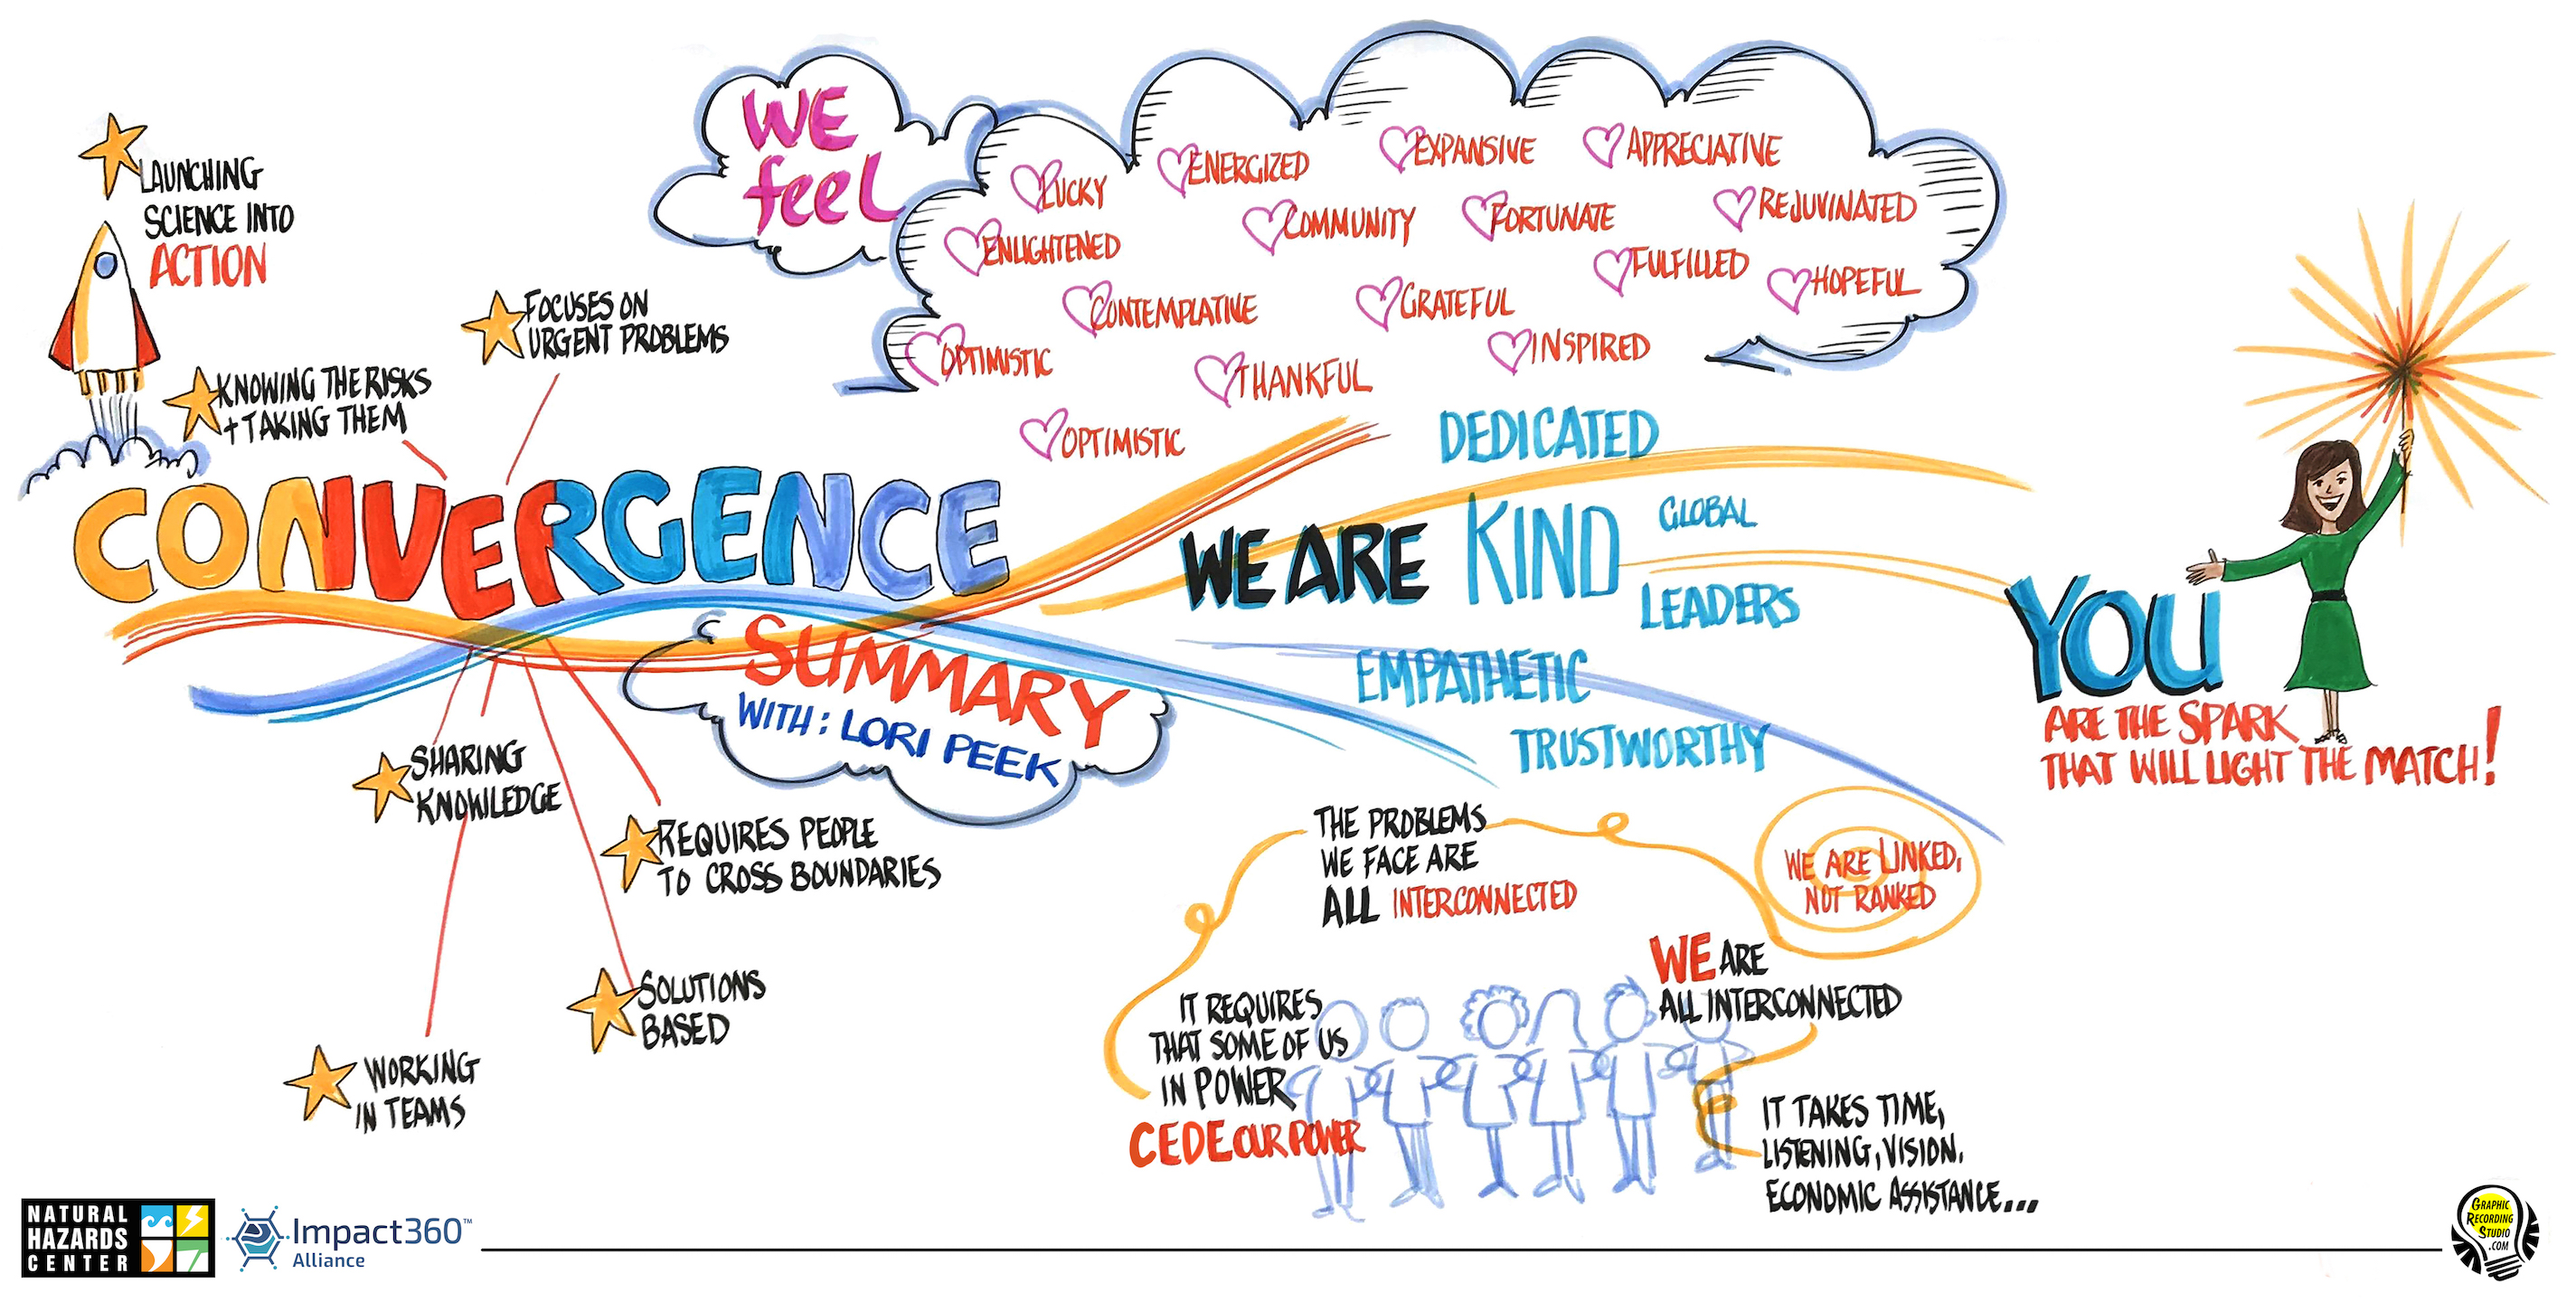 LAUNCHING
SCIENCE INTO
ACTION
KNOWING THE RISKS
+ TAKING THEM
FOCUSES ON
URGENT PROBLEMS
CONVERGENCE
SUMMARY
WITH: LORI PEEK
SHARING
KNOWLEDGE
REQUIRES PEOPLE
TO CROSS BOUNDARIES
SOLUTIONS
BASED
WORKING
IN TEAMS
WE
feel
LUCKY
ENERGIZED
EXPANSIVE
APPRECIATIVE
ENLIGHTENED
COMMUNITY
FORTUNATE
REJUVINATED
CONTEMPLATIVE
GRATEFUL
FULFILLED
HOPEFUL
OPTIMISTIC
THANKFUL
INSPIRED
OPTIMISTIC
DEDICATED
WE ARE KIND
GLOBAL
LEADERS
EMPATHETIC
TRUSTWORTHY
YOU
ARE THE SPARK
THAT WILL LIGHT THE MATCH!
THE PROBLEMS
WE FACE ARE
ALL INTERCONNECTED
WE ARE LINKED,
NOT RANKED
WE ARE
ALL INTERCONNECTED
IT REQUIRES
THAT SOME OF US
IN POWER
CEDE OUR POWER
IT TAKES TIME,
LISTENING, VISION.
ECONOMIC ASSISTANCE...
NATURAL
HAZARDS
CENTER
Impact360™
Alliance
GRAPHIC
RECORDING
STUDIO
.COM